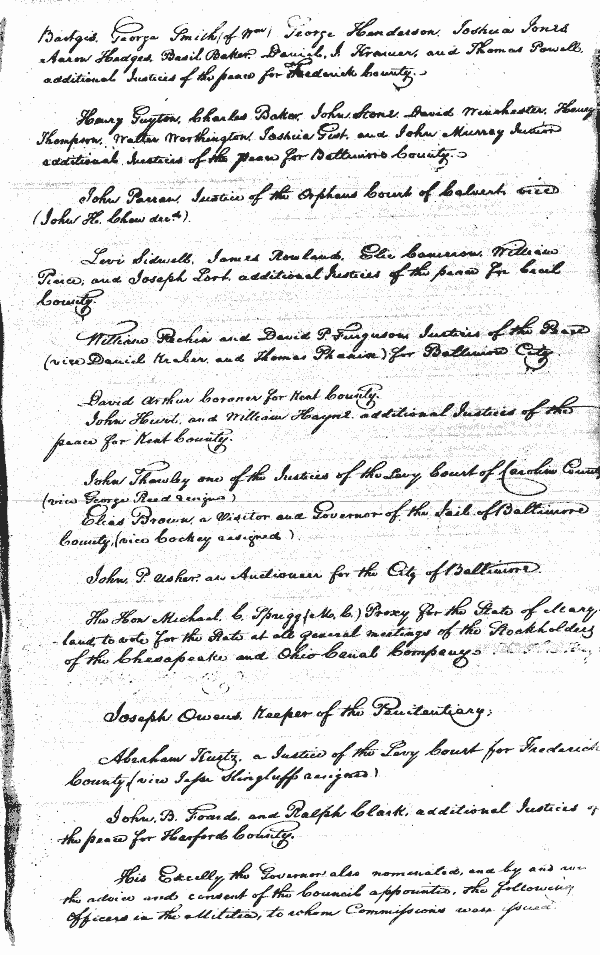 Bartgis, George Smith (of Wm) George Henderson, Joshua Jones
Aaron Hedges, Basil Baker, Daniel J. Kramer, and Thomas Powell,
additional Justices of the peace for Frederick County.
Henry Guyton, Charles Baker, John Stone, David Winchester, Henry
Thompson, Walter Worthington, Joshua Gist, and John Murray Junior
additional Justices of the peace for Baltimore County.
John Parran, Justice of the Orphans Court of Calvert, vice
(John H. Chew decd.)
Levi Sidwell, James Rowland, Elie Cameron, William
Pierce, and Joseph Lort, additional Justices of the peace for Cecil
County.
William Pechin and David P. Ferguson Justices of the Peace
(vice Daniel and Thomas ) for Baltimore City
David Arthur Coroner for Kent County.
John and William Hayne, additional Justices of the
peace for Kent County.
John Thawley one of the Justices of the Levy Court of Caroline County
(vice George Reed resigned)
Elias Brown, a Visitor and Governor of the Jail of Baltimore
County, (vice Cockey resigned ).
John P. Usher, as Auctioneer for the City of Baltimore.
The Hon Michael C. Sprigg (M. C.) Proxy for the State of Mary-
-land, to vote for the State at all general meetings of the Stockholders
of the Chesapeake and Ohio Canal Company.
Joseph Owens, Keeper of the Penitentiary;
Abraham Kurtz, a Justice of the Levy Court for Frederick
County, (vice Jesse Slingluff resigned)
John B. and Ralph Clark, additional Justices of
the peace for Harford County.
His Excelly the Governor also nominated, and by and
the advice and consent of the Council appointed, the following
Officers in the Militia, to whom Commissions were issued.